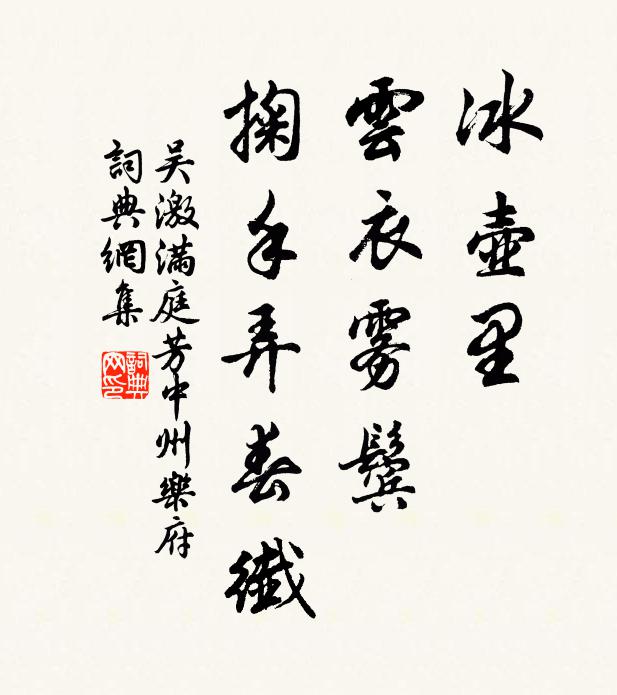 冰壺里
雲衣霧鬢
掬手弄春纖
吳激滿庭芳中州樂府
詞典網集
詞典網印